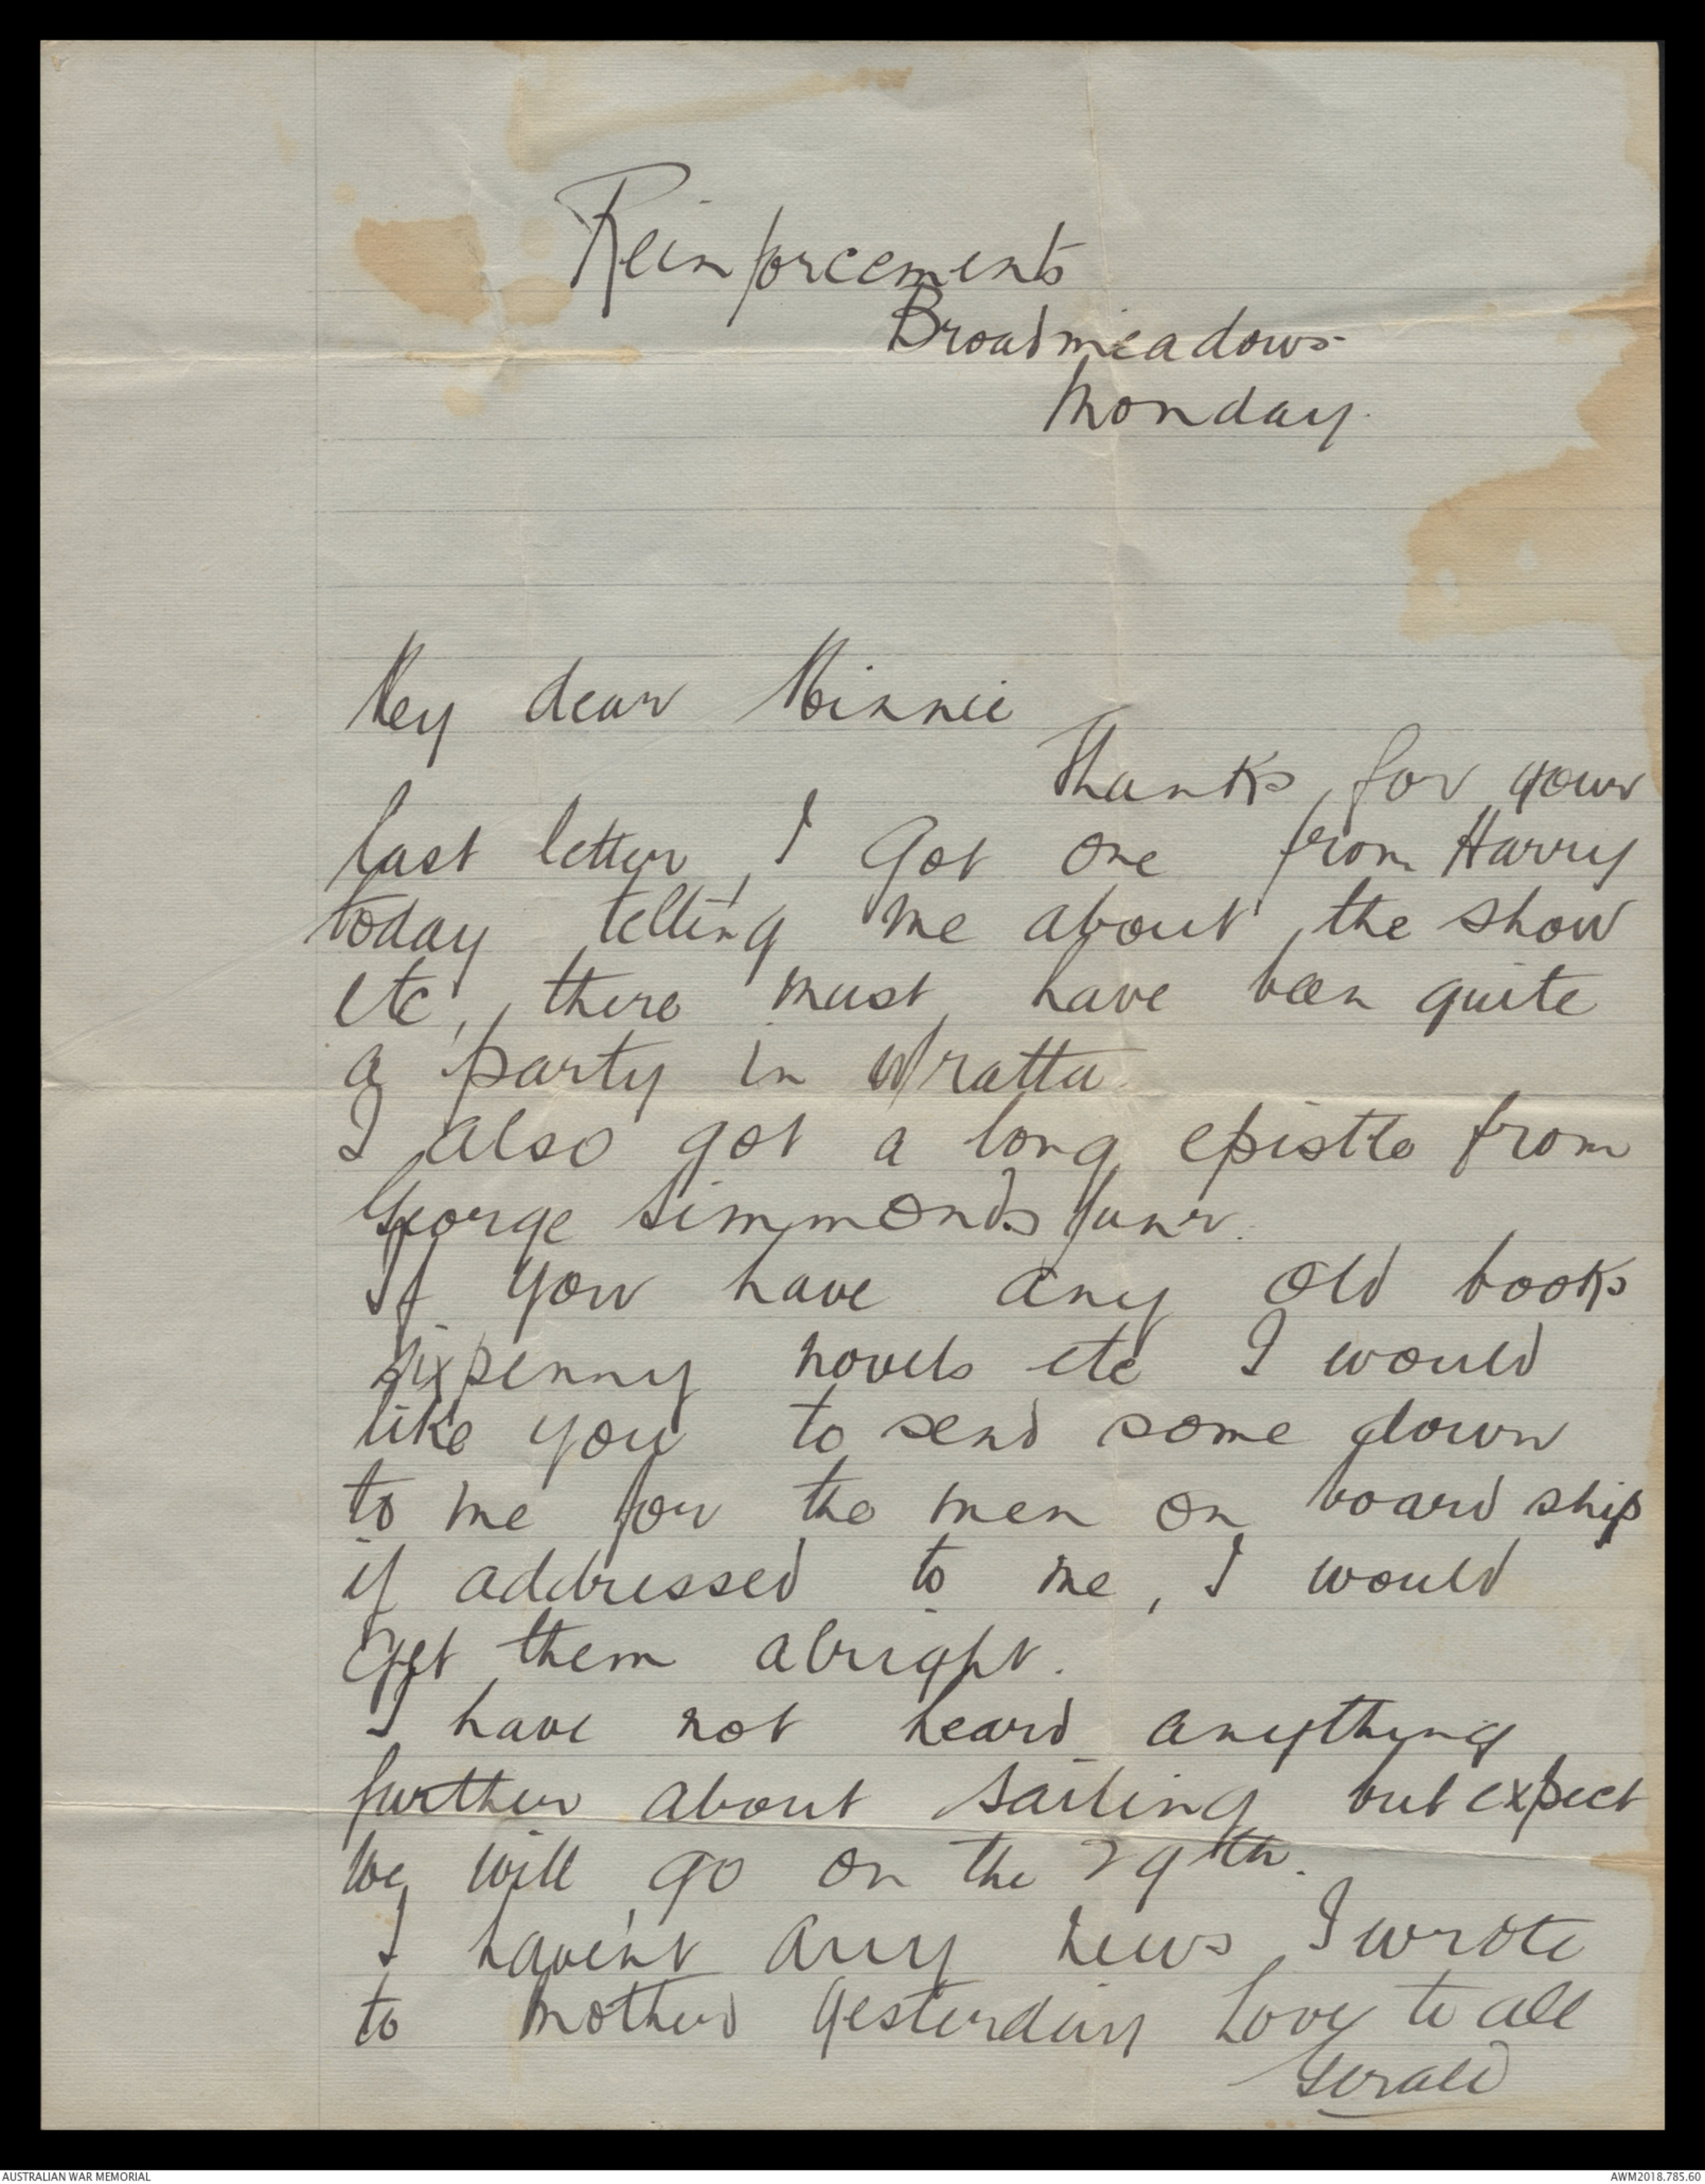 Reinforcements
Broadmeadows
Monday.
My dear Minnie
Thanks for your
last letter, I got one from Harry
today telling me about the show
etc, there must have been quite
a party in W'ratta
I also got a long epistle from
George Simmonds Junr.
If you have any old books
sixpenny novels etc I would
like you to send some down
to me for the men on board ship
if addressed to me, I would
get them alright.
I have not heard anything
further about sailing but expect
we will go on the 29th.
I haven't any news I wrote
to mother yesterday Love to all
Gerald
AUSTRALIAN WAR MEMORIAL
AWM2018.785.60